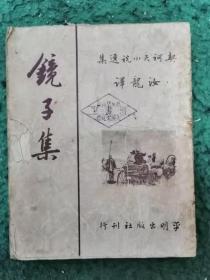 契訶夫小說選集
汝龍譯
鏡子集
平明出版社刊行